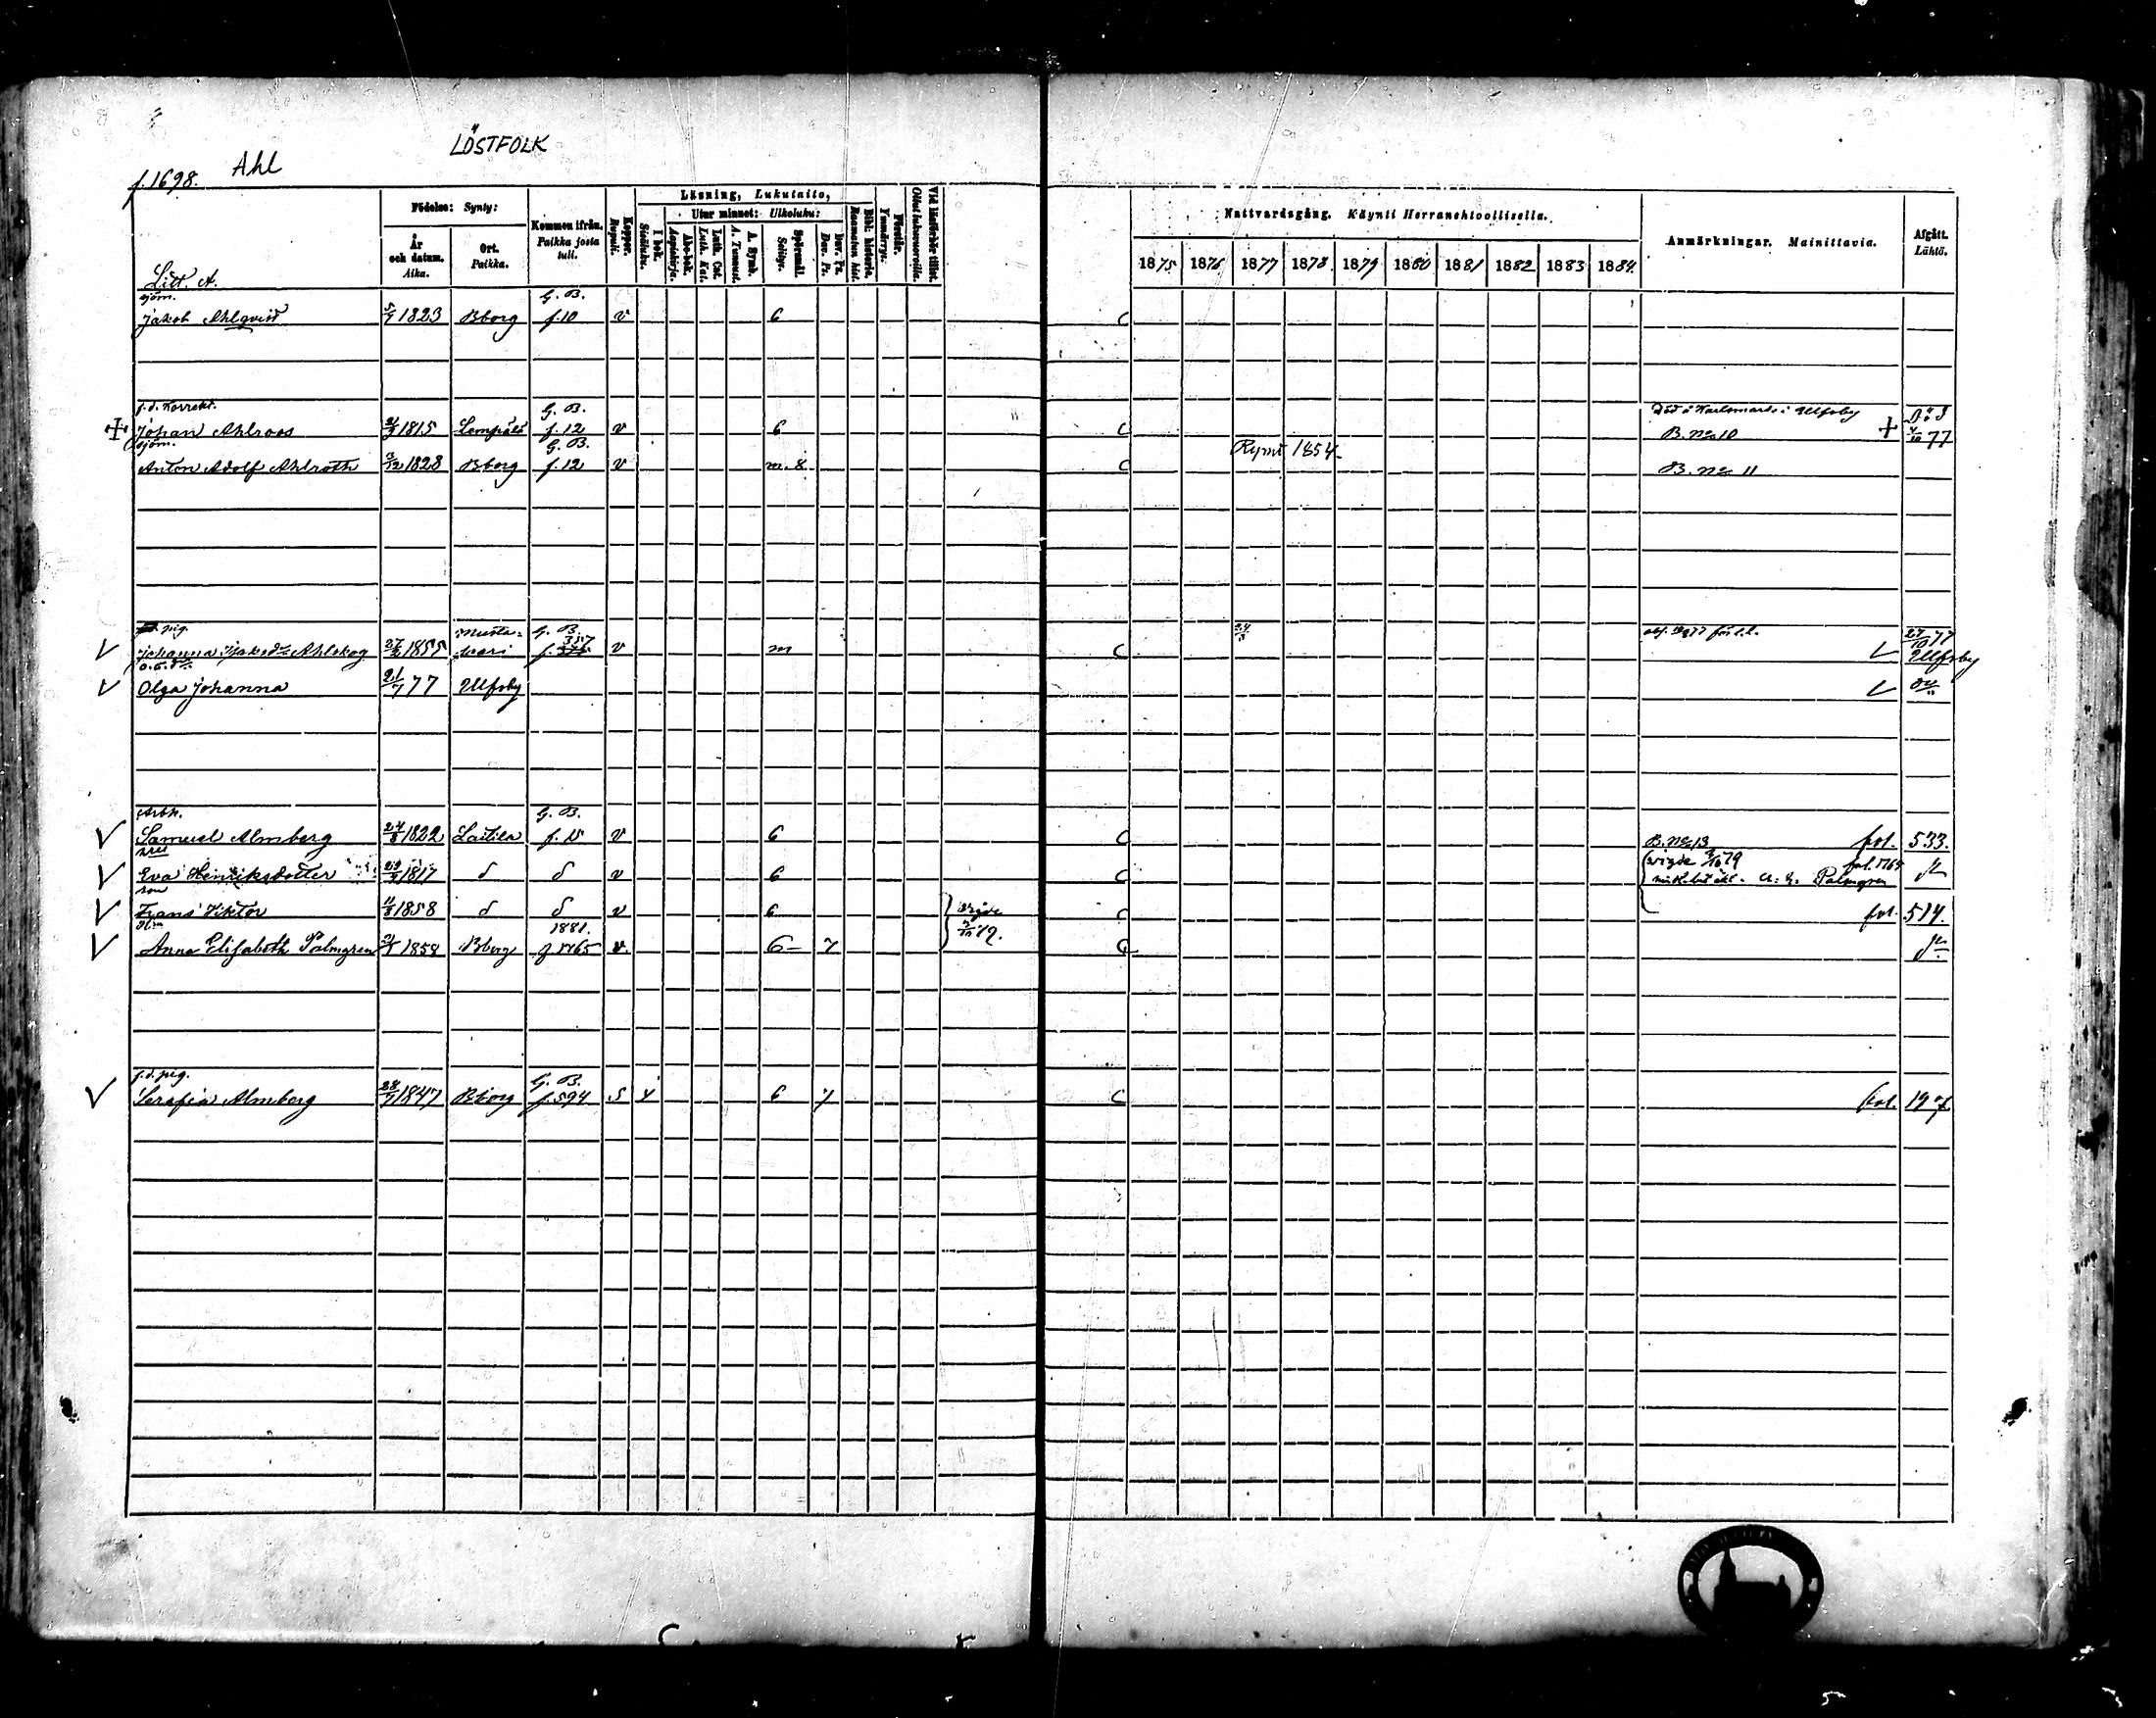 LÖSTFOLK
Ahl
f. 1698.
Födelse: Synty:
År och datum. Aika.
Ort. Paikka.
Kommen ifrån. Paikka josta tuli.
Koppor. Rupuli.
Läsning, Lukutaito,
I bok. Sisäluku.
Utur minnet: Ulkoluku:
Abc-bok. Aapiskirja.
Luth. Cat. Luth. Kat.
A. Symb. A. Tunnust.
Spörsmål. Selitys.
Dav. Ps. Dav. Ps.
Bibl. historia. Raamatun hist.
Förstår. Ymmärrys.
Vid läseförhör tillst. Ollut lukuvuoroilla.
Nattvardsgång. Käynti Herranehtoollisella.
1875 1876 1877 1878 1879 1880 1881 1882 1883 1884
Anmärkningar. Mainittavia.
Afgått. Lähtö.
Litt. A.
sjöm. G. B.
Jakob Ahlqvist 5/7 1823 Bborg f. 10 v 6 C
f. d. Korrekt. G. B. Död å Karlsmark i Ulfsby Död
Johan Ahlroos 1815 Lempälä f. 12 v 6 C B. No 10 4/10 77
sjöm. G. B. Rymt 1854
Anton Adolf Ahlroth 3/12 1828 Bborg f. 12 v m. 8 C B. No 11
pig. Musta= G. B. 317
Johanna Jakobdr Ahlskog 27/2 1855 saari f. v m C 27/10 77 Ulfsby
o. ä. dr.
Olga Johanna 21/7 77 Ulfsby do
Arbk. G. B.
Samuel Almberg 24/8 1822 Laitila f. 15 v 6 C B. No 13 fol. 533.
hru
Eva Henriksdotter 1817 d d v 6 C vigde 79 fol. 1765
Palmgren
son
Frans Viktor 11/8 1858 d d v 6 vigde 79. C fol. 514.
Hm 1881.
Anna Elisabeth Palmgren 1858 Bborg f. 1765 v. 6 7 C
f. d. pig. G. B.
Serafia Almberg 28/7 1847 Bborg f. 594 S 4 6 7 C fol. 197